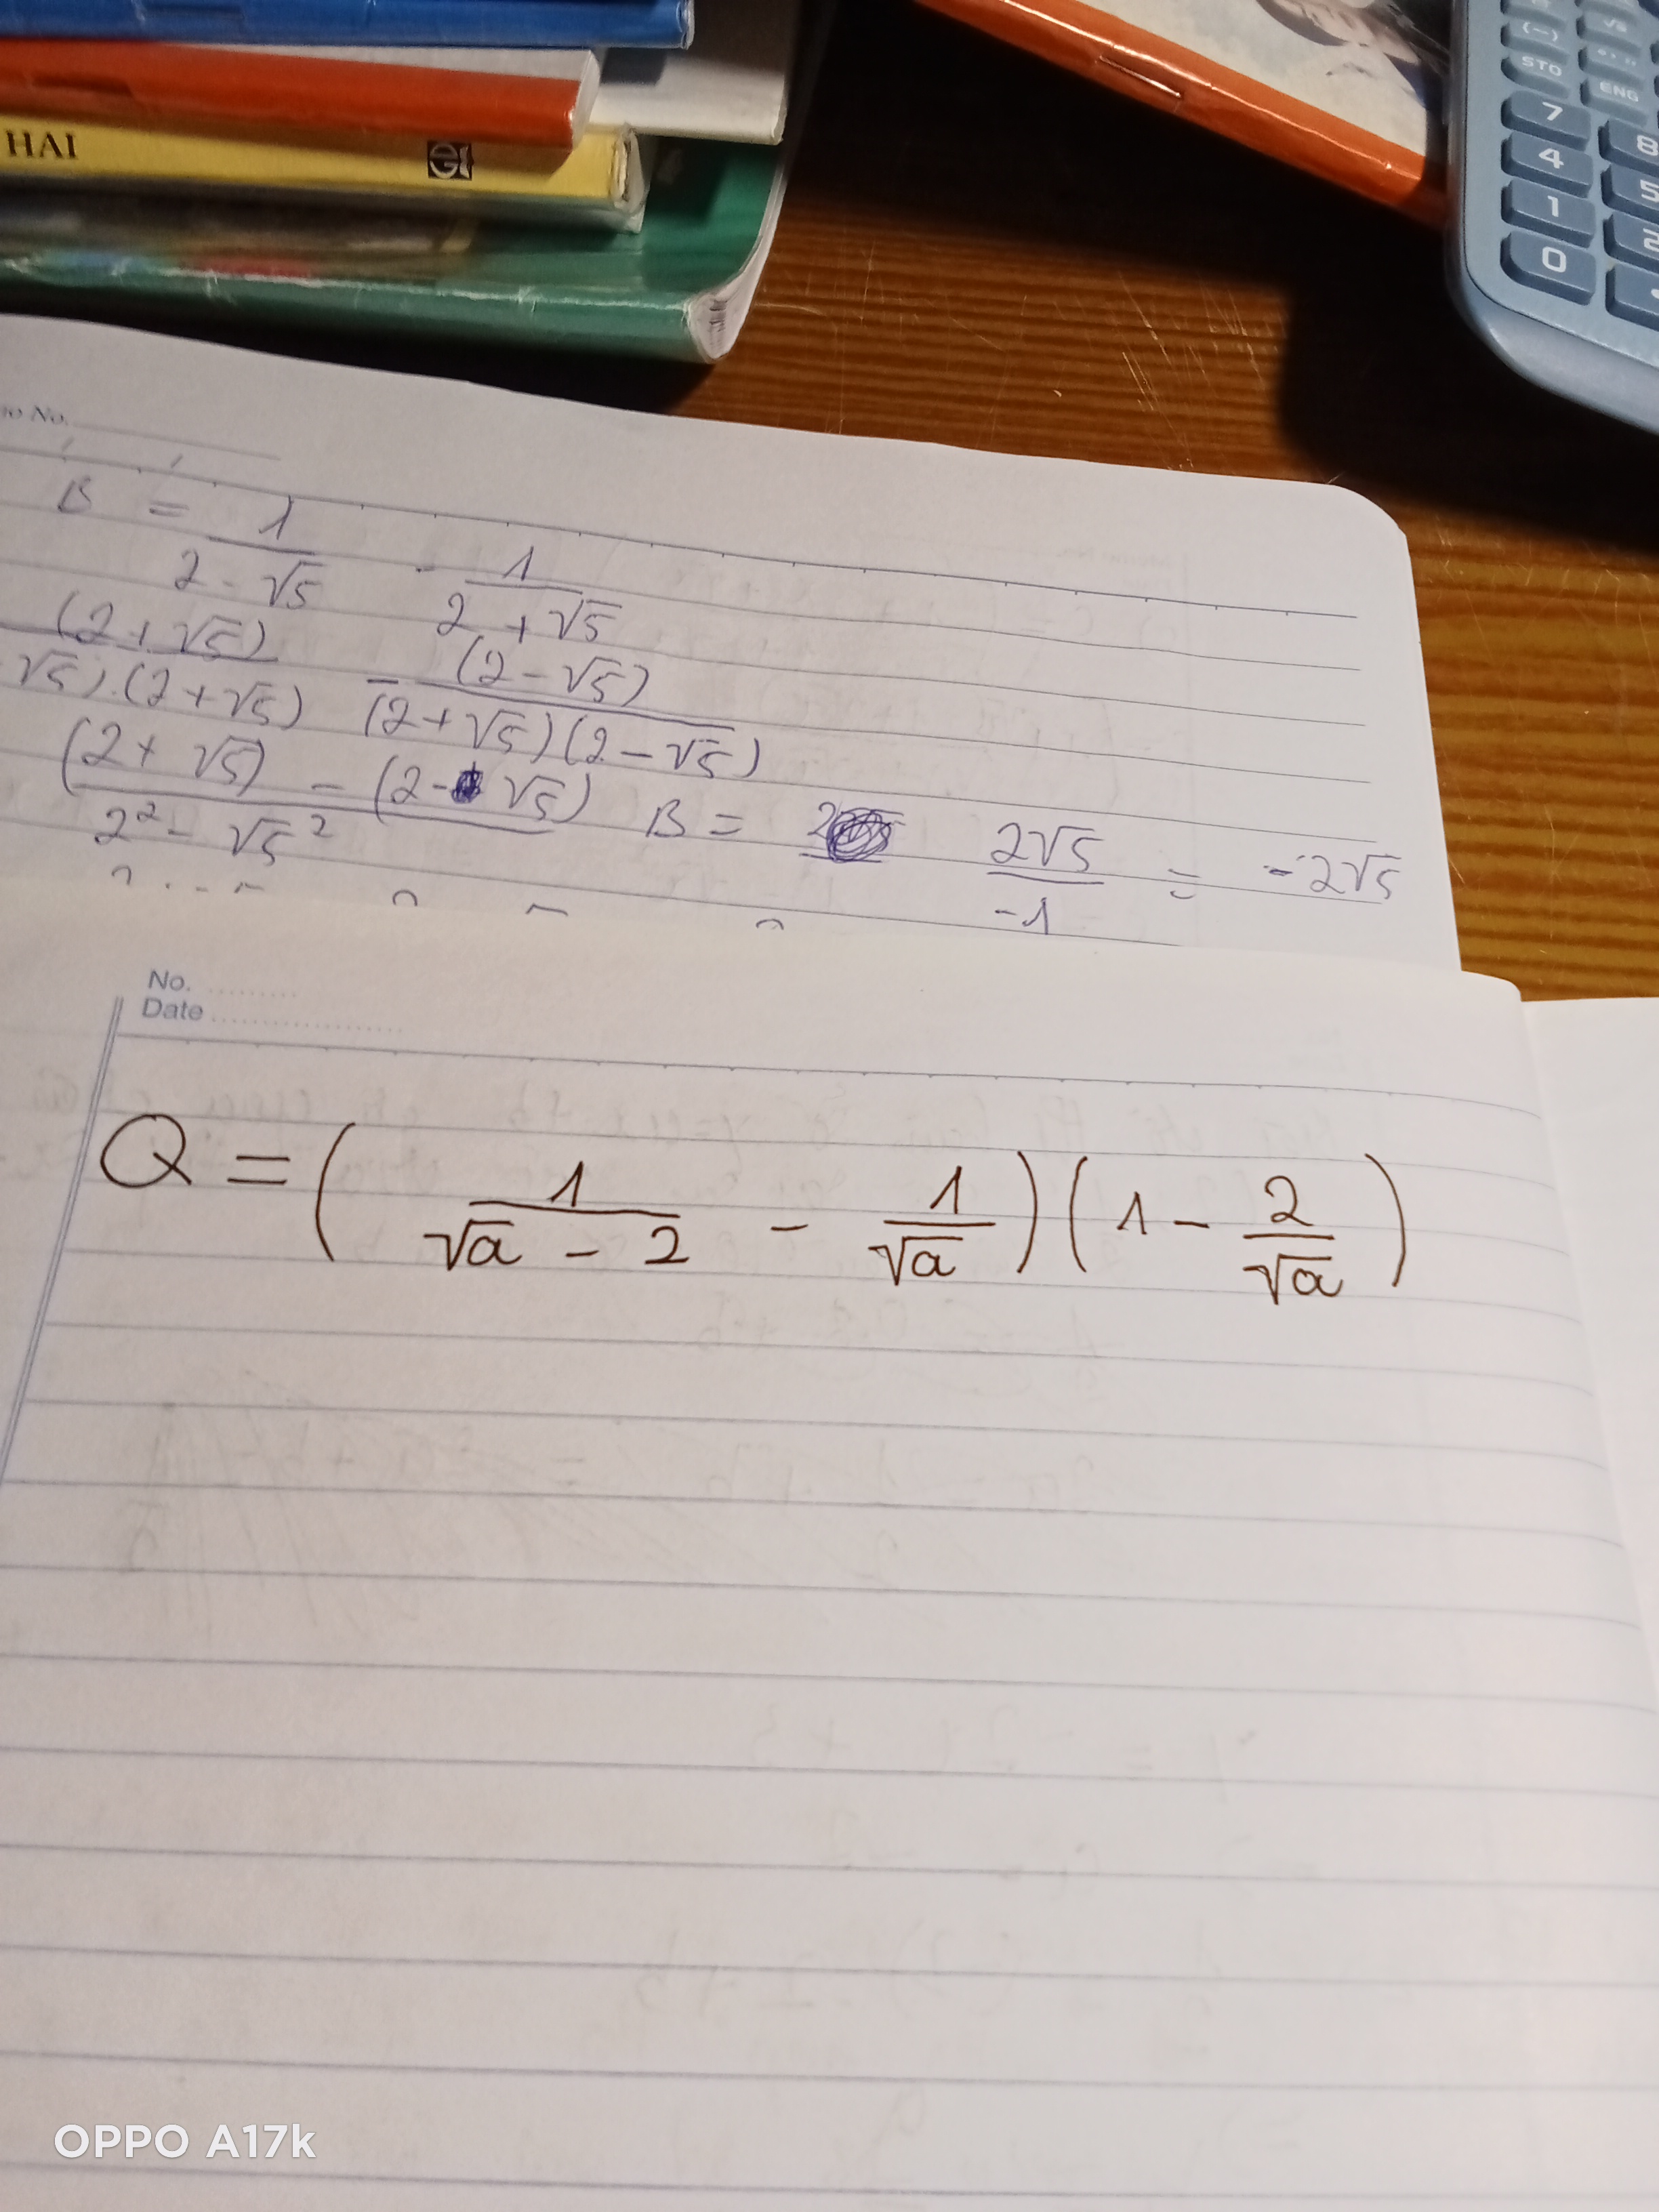 HAI
(-)
STO
ENG
7
8
4
5
1
2
0
No.
B = 1/(2 - √5) - 1/(2 + √5)
(2 + √5)/(√5).(2 + √5) - (2 - √5)/(2 + √5)(2 - √5)
((2 + √5) - (2 - √5))/(2² - √5²) B = 2√5/-1 = -2√5
No. .........
Date ....................
Q = (1/(√a - 2) - 1/√a)(1 - 2/√a)
OPPO A17k